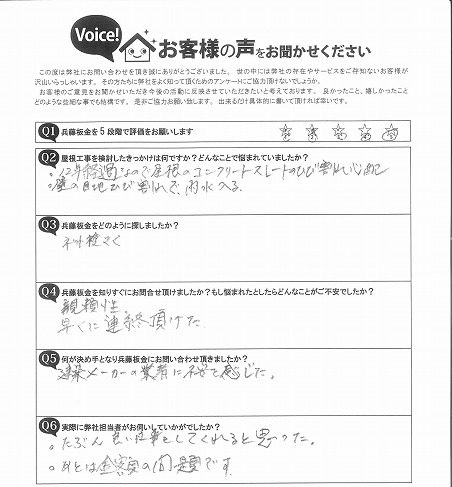 Voice!
お客様の声をお聞かせください
この度は弊社にお問い合わせを頂き誠にありがとうございました。世の中には弊社の存在やサービスをご存知ないお客様が
沢山いらっしゃいます。その方たちに弊社をよく知って頂くためのアンケートにご協力頂けないでしょうか。
お客様のご意見をお聞かせいただき今後の活動に反映させていただきたいと考えております。良かったこと、嬉しかったこと
どのような些細な事でも結構です。是非ご協力お願い致します。出来るだけ具体的に書いて頂ければ幸いです。
Q1 兵藤板金を5段階で評価をお願いします ☆ ☆ ☆ ☆ ☆
Q2 屋根工事を検討したきっかけは何ですか?どんなことで悩まれていましたか?
・12年経過なので屋根のコンクリートスレートのひび割れ心配
・壁の目地ひび割れで、雨水入る。
Q3 兵藤板金をどのように探しましたか?
ネット検さく
Q4 兵藤板金を知りすぐにお問合せ頂けましたか?もし悩まれたとしたらどんなことがご不安でしたか?
親頼性。
早くに連絡頂けた
Q5 何が決め手となり兵藤板金にお問い合わせ頂きましたか?
建築メーカーの業者に不安を感じた。
Q6 実際に弊社担当者がお伺いしていかがでしたか?
・たぶん良い仕事をしてくれると思った。
・あとは金額の問題です